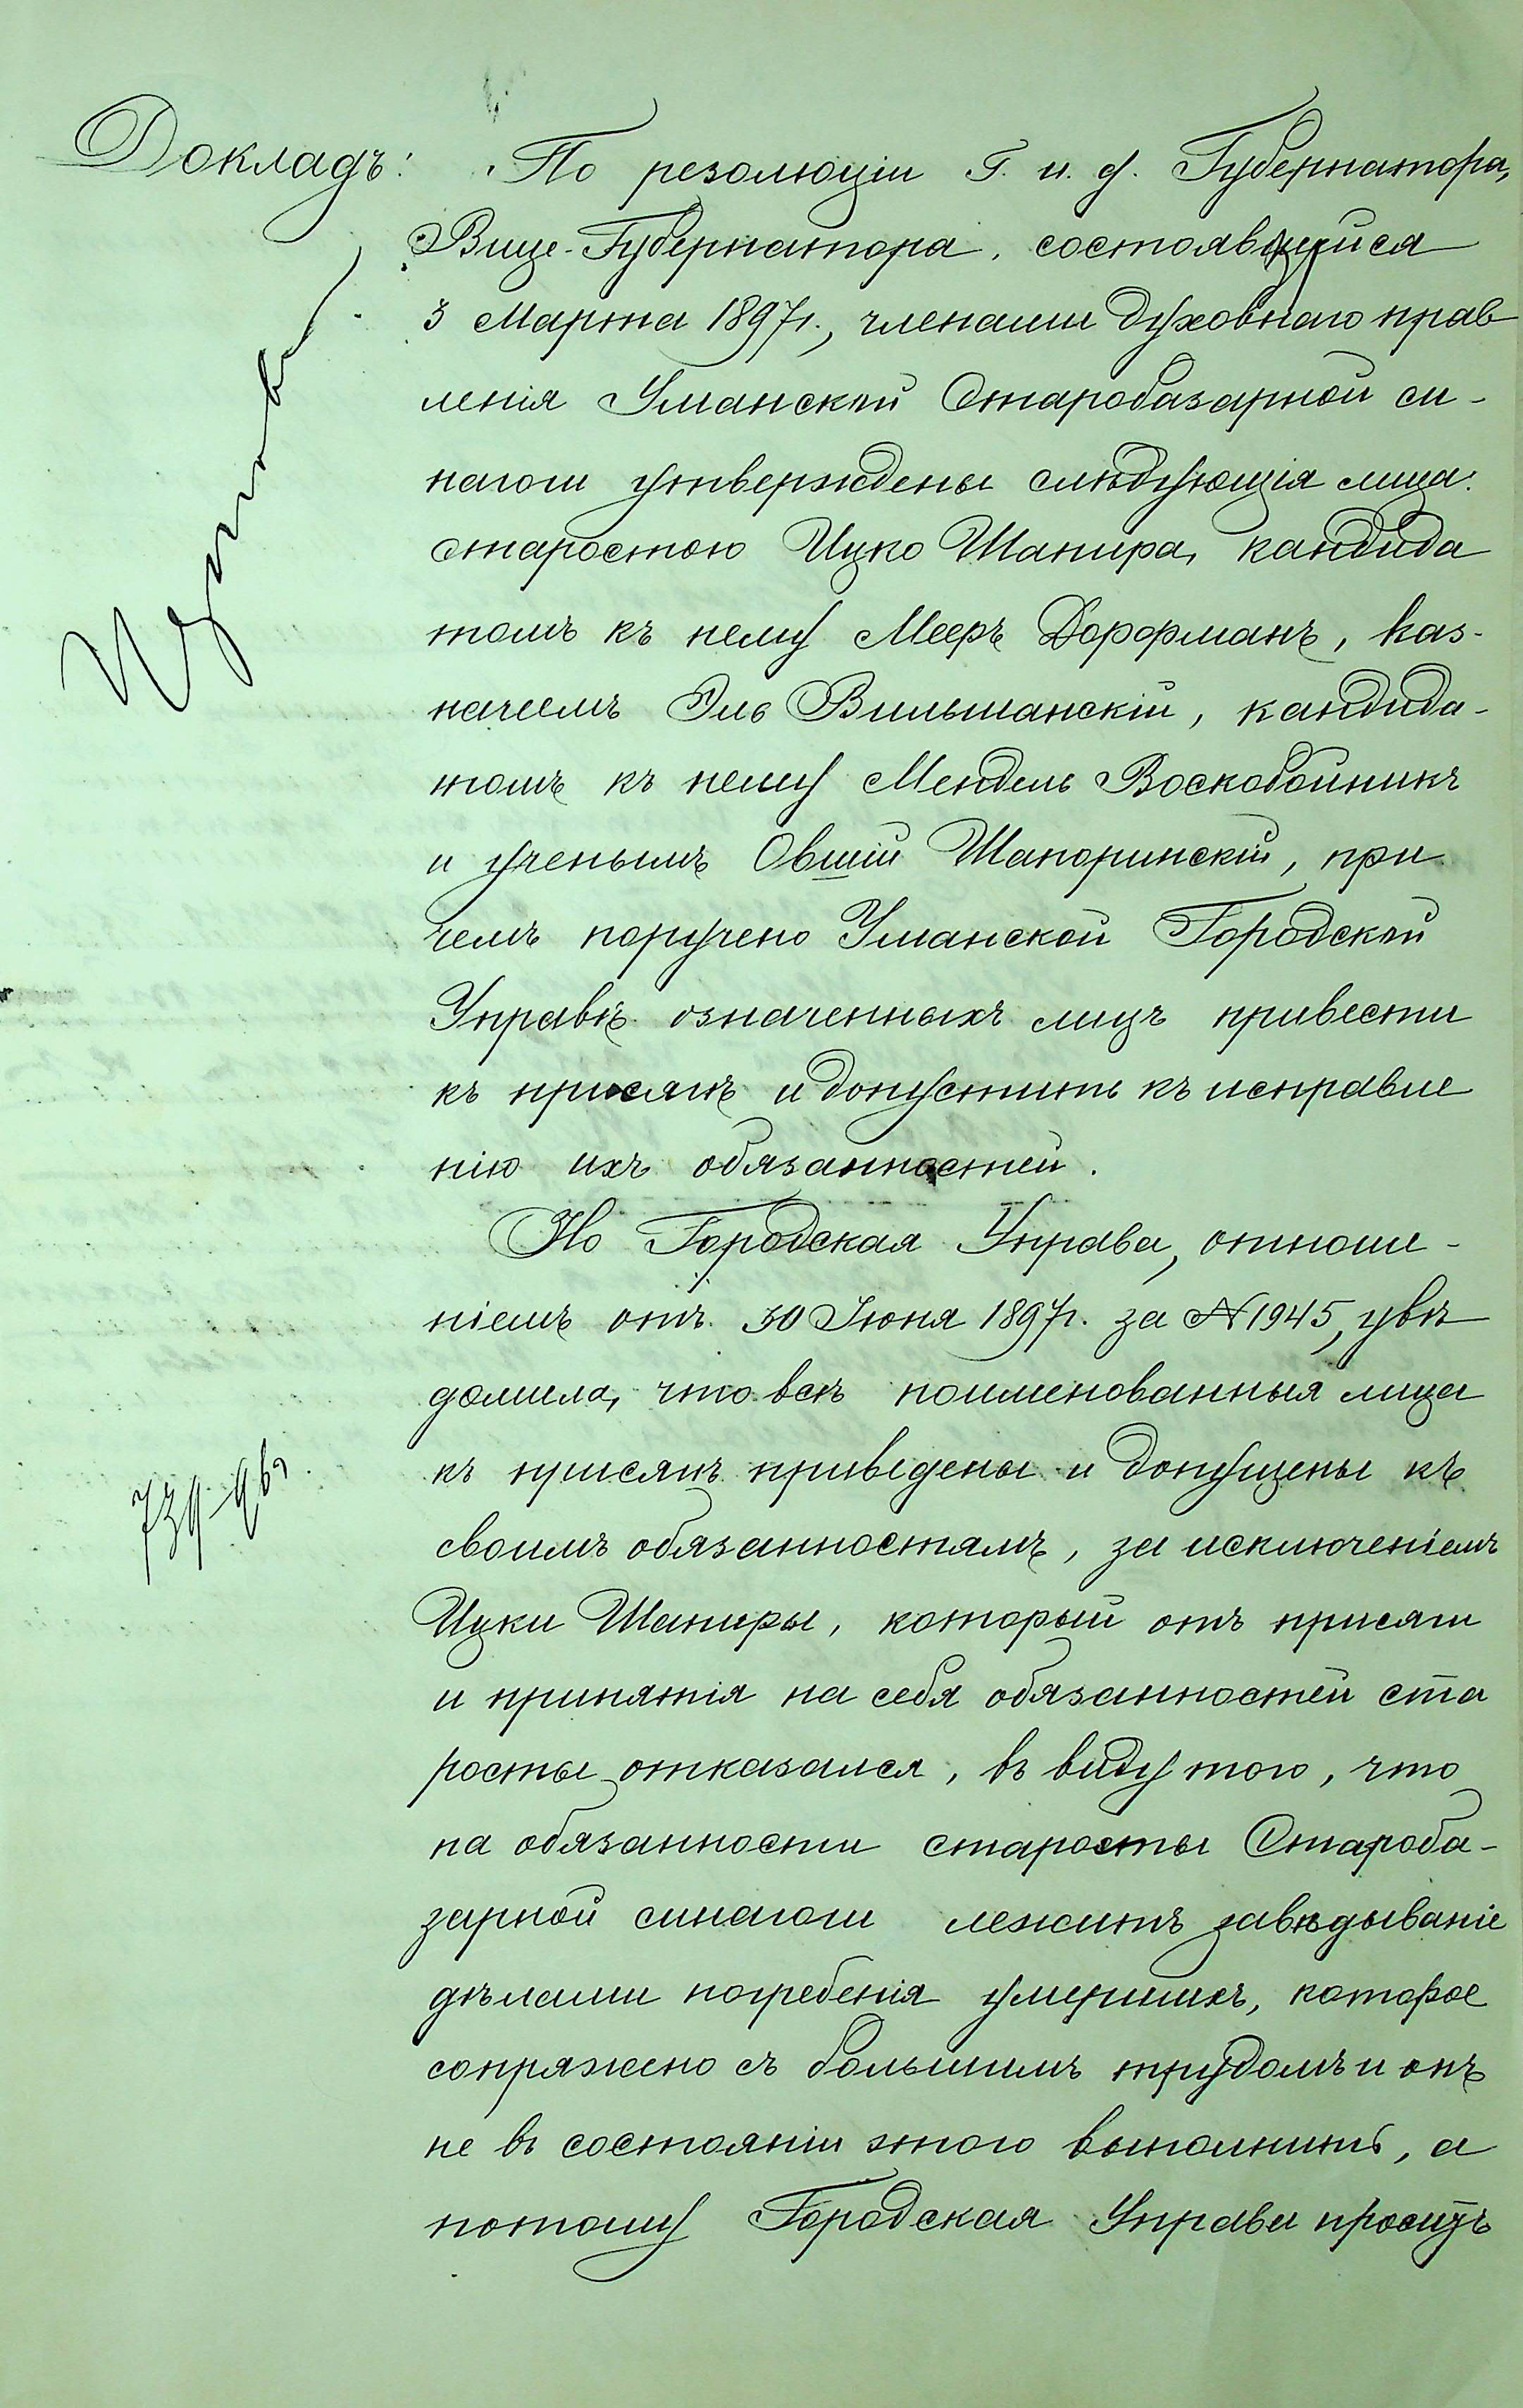 Докладъ:
По резолюціи Г. и. д. Губернатора,
Вице-Губернатора, состоявшейся
3 Марта 1897г., членами духовнаго прав
ленія Уманской Старобазарной си-
нагоги утверждены слѣдующія лица:
старостою Ицко Шапира, кандида
томъ къ нему Мееръ Дорфманъ, каз-
начеемъ Эль Вильшанскій, кандида-
томъ къ нему Мендель Воскобойникъ
и ученымъ Овшій Шапоринскій, при
чемъ поручено Уманской Городской
Управѣ означенныхъ лицъ привести
къ присягѣ и допустить къ исправле
нію ихъ обязанностей.
Но Городская Управа, отноше-
ніемъ отъ 30 Іюня 1897г. за № 1945, увѣ
домила, что всѣ поименованныя лица
къ присягѣ приведены и допущены къ
своимъ обязанностямъ, за исключеніемъ
Ицки Шапиры, который отъ присяги
и принятія на себя обязанностей ста
росты отказался, въ виду того, что
на обязанности старосты Староба-
зарной синагоги лежитъ завѣдываніе
дѣлами погребенія умершихъ, которое
сопряжено съ большимъ трудомъ и онъ
не въ состояніи этого выполнить, а
потому Городская Управа проситъ